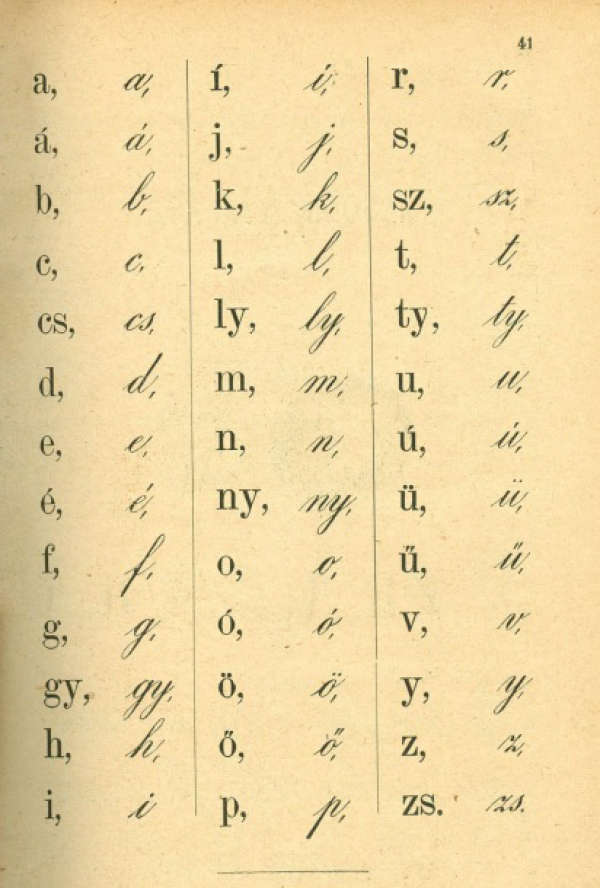 41
a, a,
á, á,
b, b,
c, c,
cs, cs,
d, d,
e, e,
é, é,
f, f,
g, g,
gy, gy,
h, h,
i, i
í, í,
j, j,
k, k,
l, l,
ly, ly,
m, m,
n, n,
ny, ny,
o, o,
ó, ó,
ö, ö,
ő, ő,
p, p,
r, r,
s, s,
sz, sz,
t, t,
ty, ty,
u, u,
ú, ú,
ü, ü,
ű, ű,
v, v,
y, y,
z, z,
zs. zs.